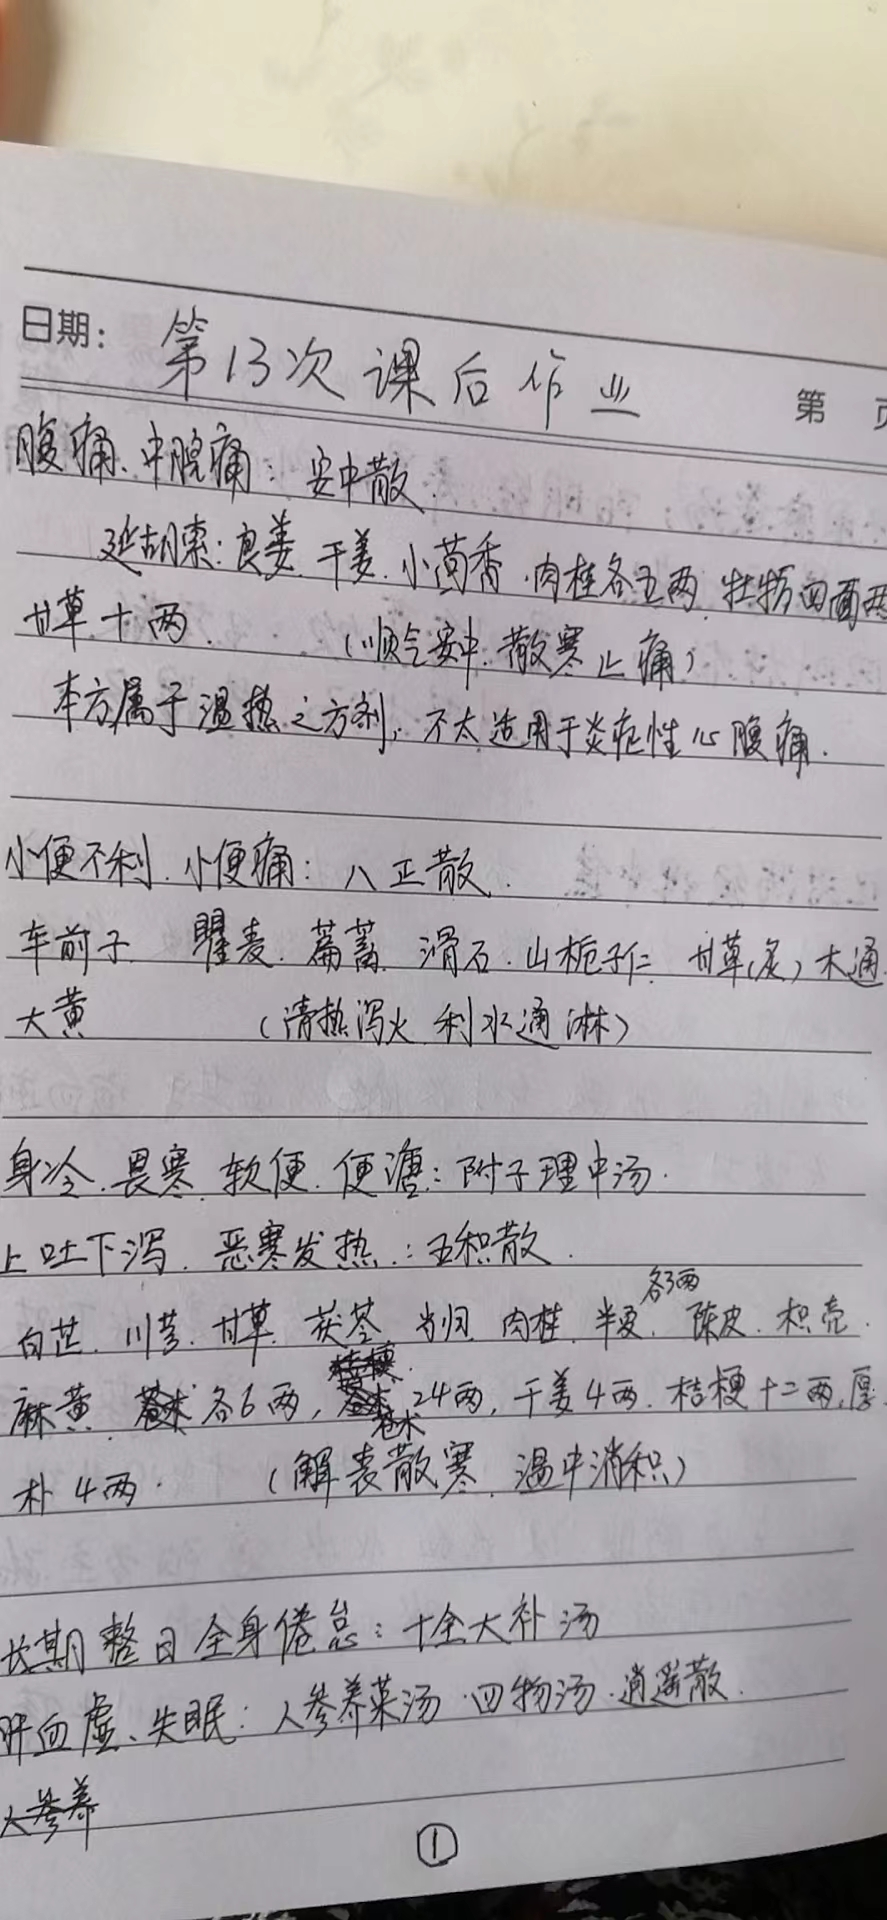 日期: 第13次课后作业 第 页
腹痛、中脘痛: 安中散.
延胡索: 良姜. 干姜. 小茴香. 肉桂各五两. 牡蛎四面两
甘草十两. (顺气安中. 散寒止痛)
本方属于温热之方剂, 不太适用于炎症性心腹痛.
小便不利. 小便痛: 八正散.
车前子 瞿麦. 萹蓄 滑石. 山栀子仁 甘草(炙) 木通.
大黄 (清热泻火 利水通淋)
身冷. 畏寒. 软便. 便溏: 附子理中汤.
上吐下泻. 恶寒发热.: 五积散.
各3两
白芷. 川芎. 甘草. 茯苓 当归. 肉桂. 半夏. 陈皮. 枳壳.
桔梗
麻黄 苍术 各6两, 苍术 24两, 干姜4两. 桔梗十二两, 厚
苍术
朴4两. (解表散寒. 温中消积)
长期整日全身倦怠: 十全大补汤
肝血虚、失眠: 人参养菜汤. 四物汤. 逍遥散.
人参养
1